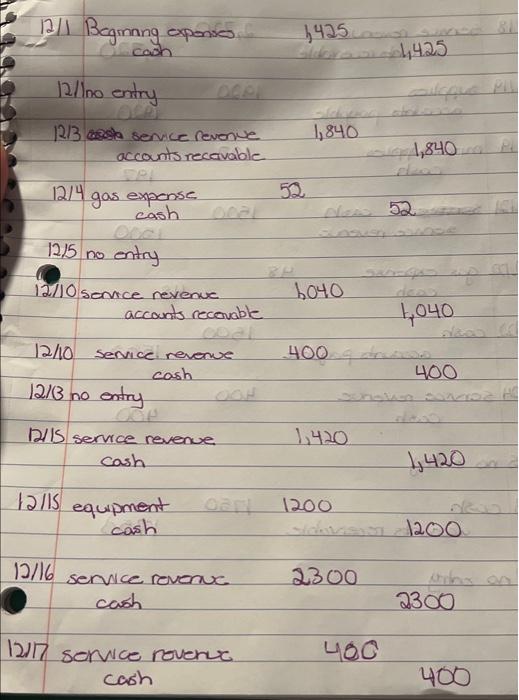 12/1 Beginning expenses 1,425
cash 1,425
12/1 no entry
12/3 service revenue 1,840
accounts recavable 1,840
12/4 gas expense 52
cash 52
12/5 no entry
12/10 service revenue 1,040
accounts recevable 1,040
12/10 service revenue 400
cash 400
12/13 no entry
12/15 service revenue 1,420
cash 1,420
12/15 equipment 1200
cash 1200
12/16 service revenue 2300
cash 2300
12/17 service revenue 400
cash 400